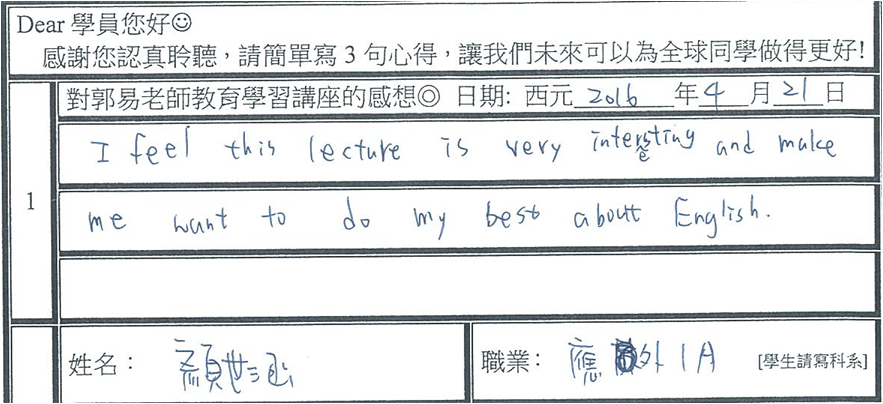 Dear 學員您好☺
感謝您認真聆聽，請簡單寫 3 句心得，讓我們未來可以為全球同學做得更好!
對郭易老師教育學習講座的感想◎ 日期: 西元 2016 年 4 月 21 日
1
I feel this lecture is very interesting and make
me want to do my best about English.
姓名： 顏世涵
職業： 應外 1A [學生請寫科系]